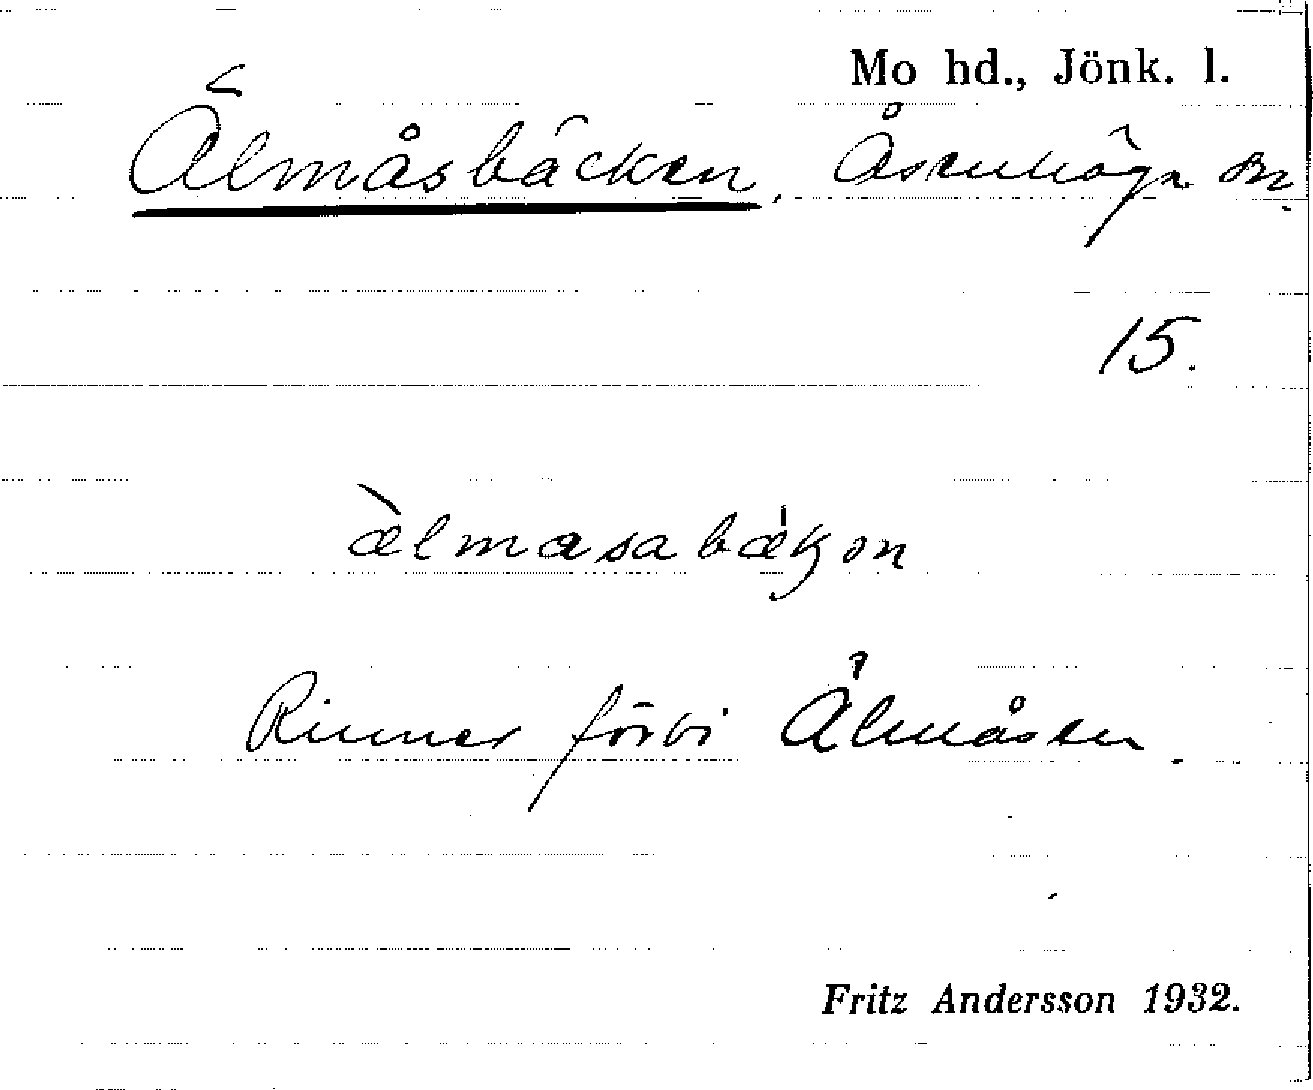 Mo hd., Jönk. l.
Älmåsbäcken, Åsenhöga sn.
15.
ælmasabækən
Rinner förbi Älmåsen.
Fritz Andersson 1932.